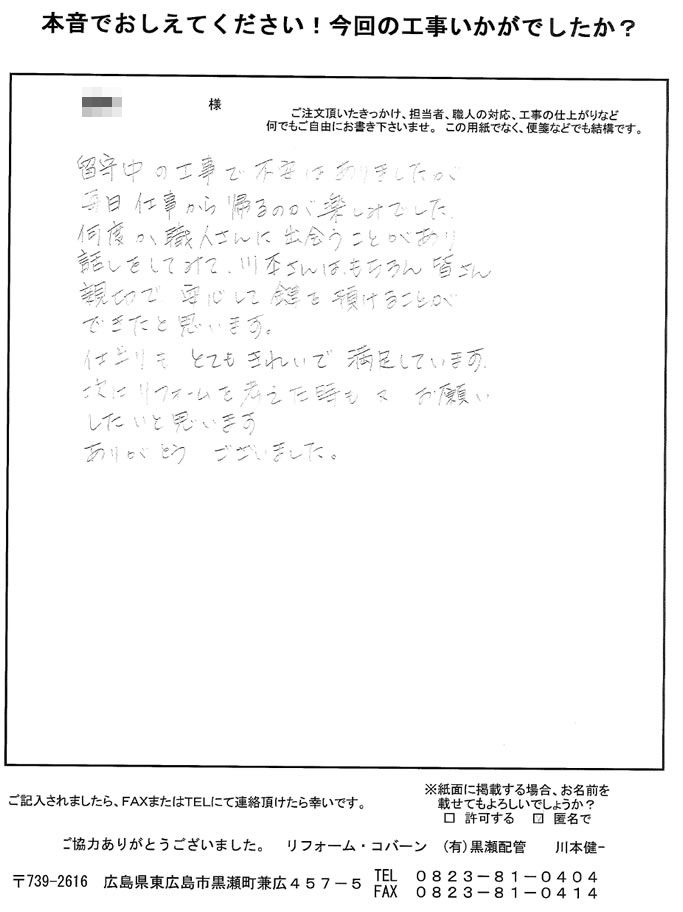 本音でおしえてください！今回の工事いかがでしたか？
様
ご注文頂いたきっかけ、担当者、職人の対応、工事の仕上がりなど
何でもご自由にお書き下さいませ。この用紙でなく、便箋などでも結構です。
留守中の工事で不安はありましたが
毎日仕事から帰るのが楽しみでした。
何度か職人さんに出会うことがあり
話しをしてみて、川本さんはもちろん皆さん
親切で安心して鍵を預けることが
できたと思います。
仕上りもとてもきれいで満足しています。
次にリフォームを考えた時も又お願い
したいと思います
ありがとうございました。
ご記入されましたら、FAXまたはTELにて連絡頂けたら幸いです。
※紙面に掲載する場合、お名前を
載せてもよろしいでしょうか？
□ 許可する ☑ 匿名で
ご協力ありがとうございました。 リフォーム・コバーン (有)黒瀬配管 川本健一
〒739-2616 広島県東広島市黒瀬町兼広４５７－５
TEL ０８２３－８１－０４０４
FAX ０８２３－８１－０４１４